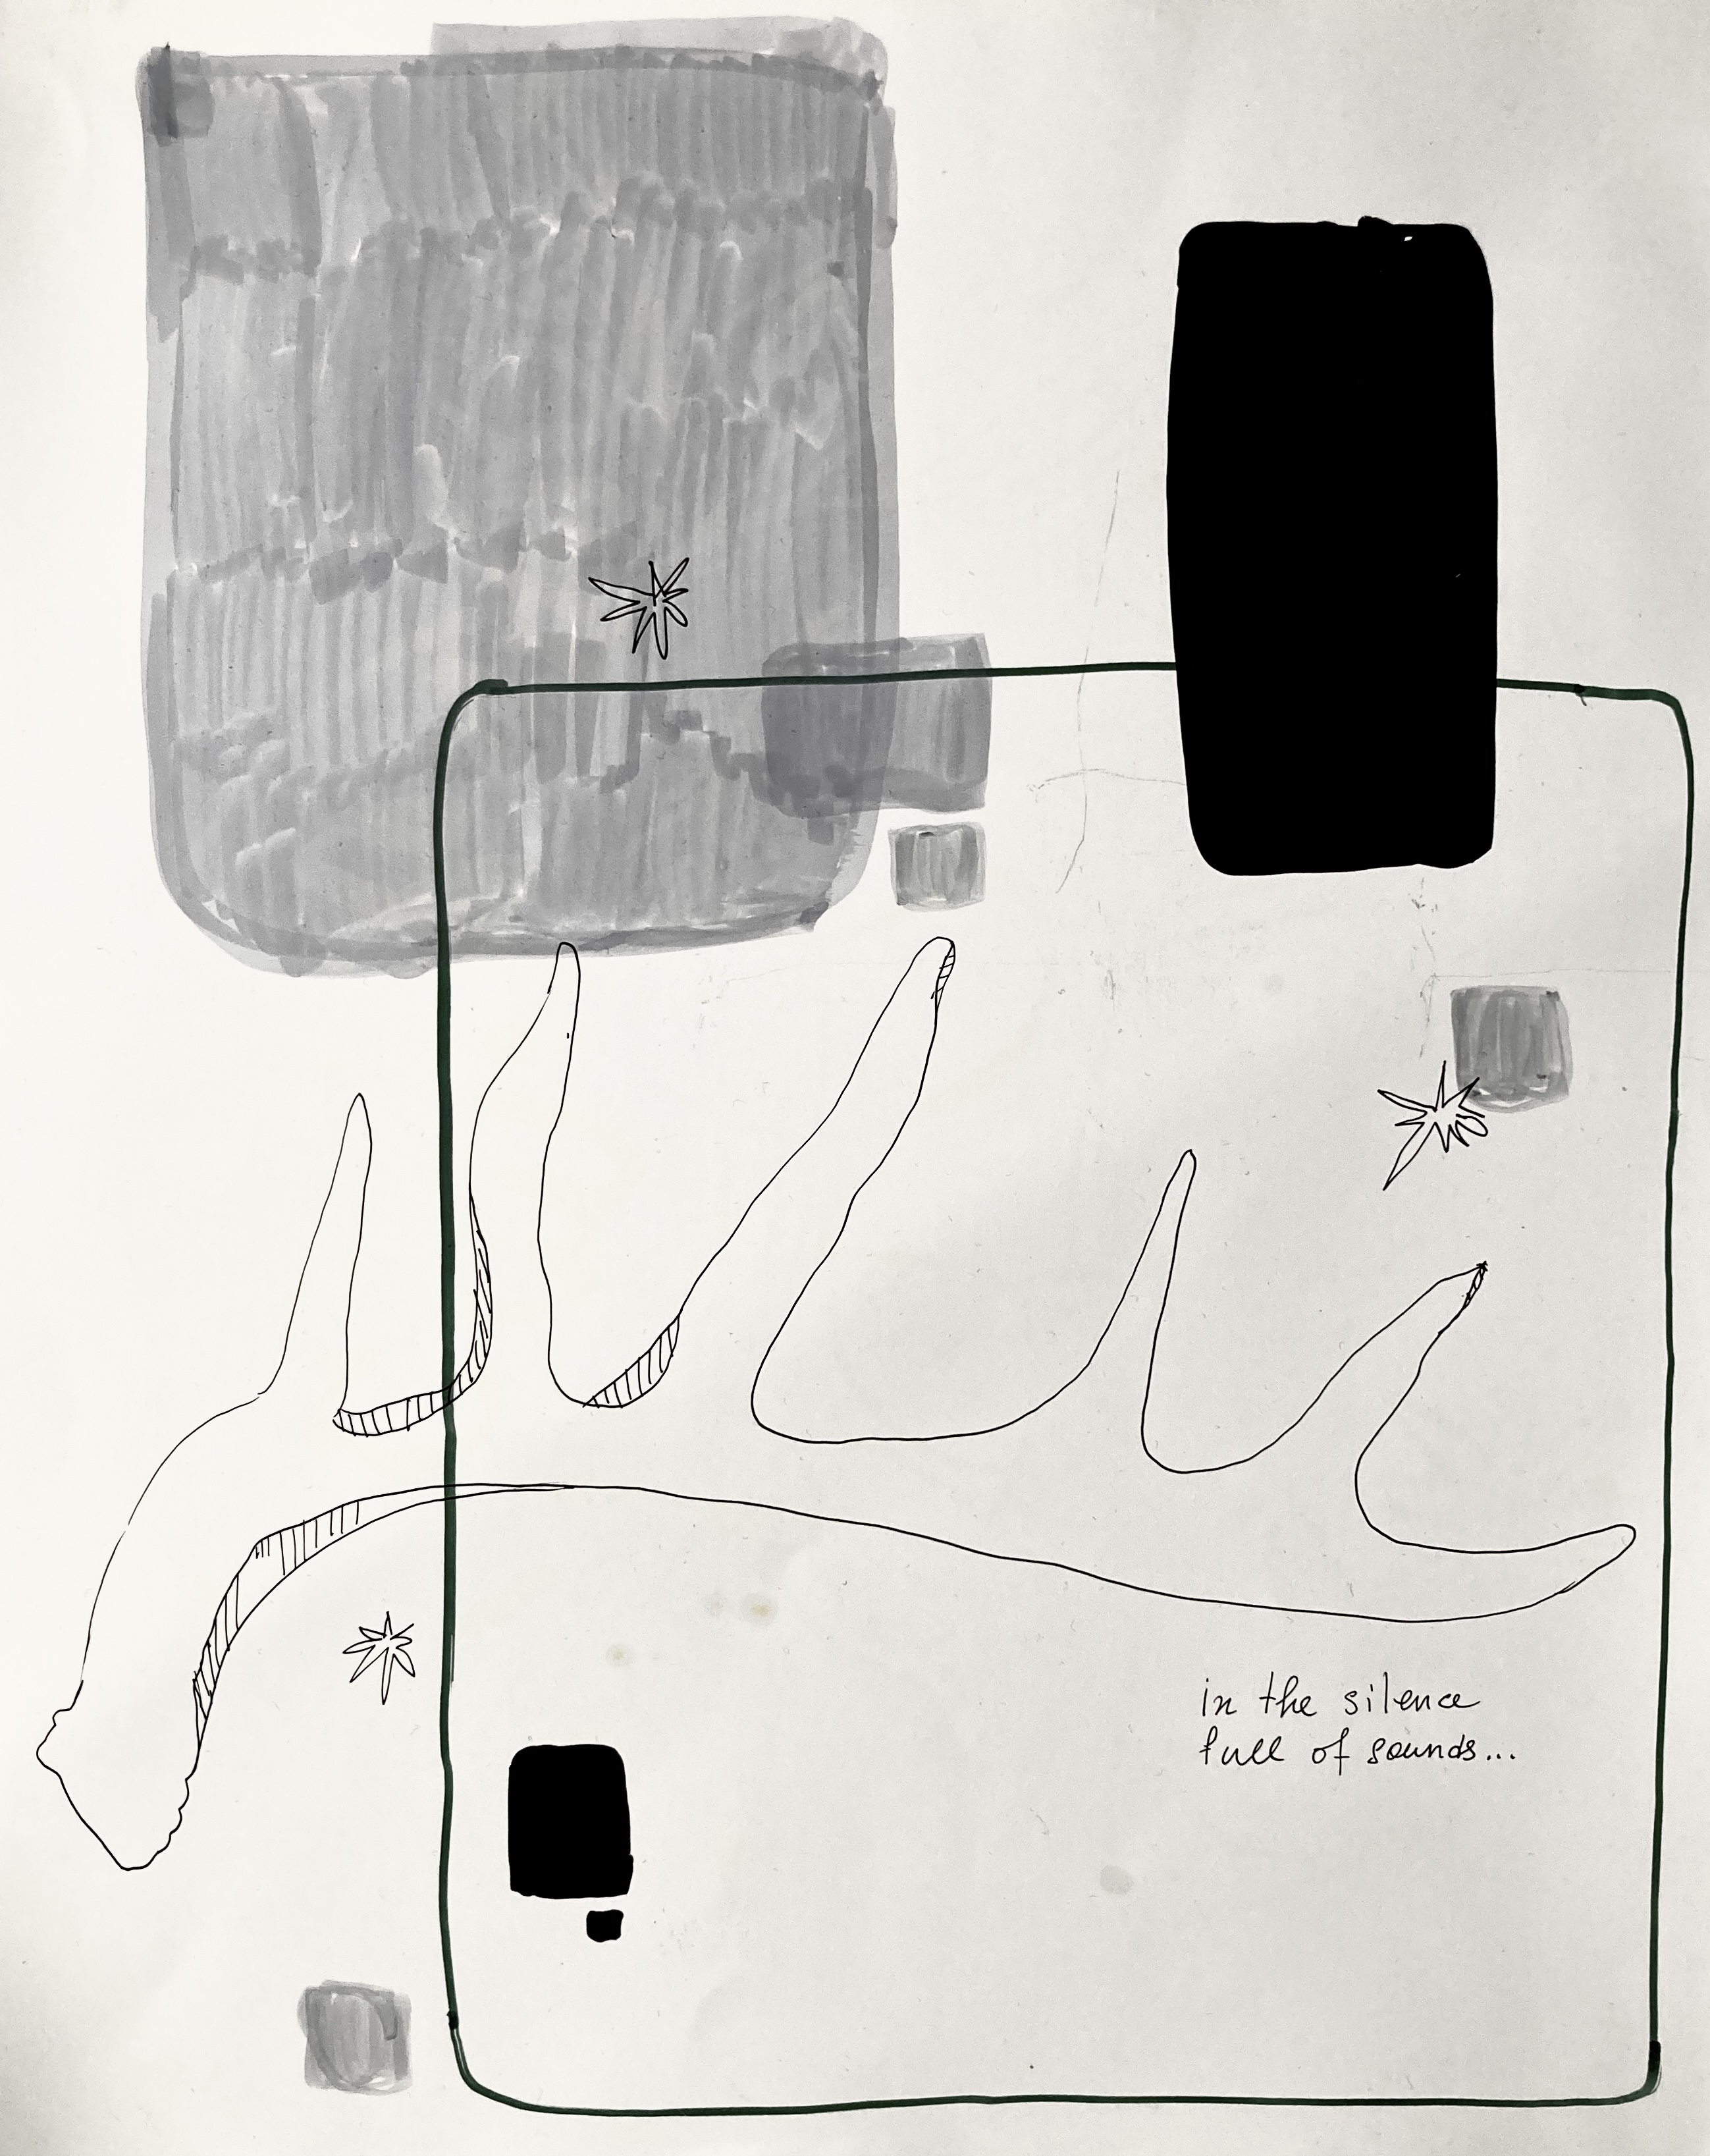 in the silence
full of sounds...